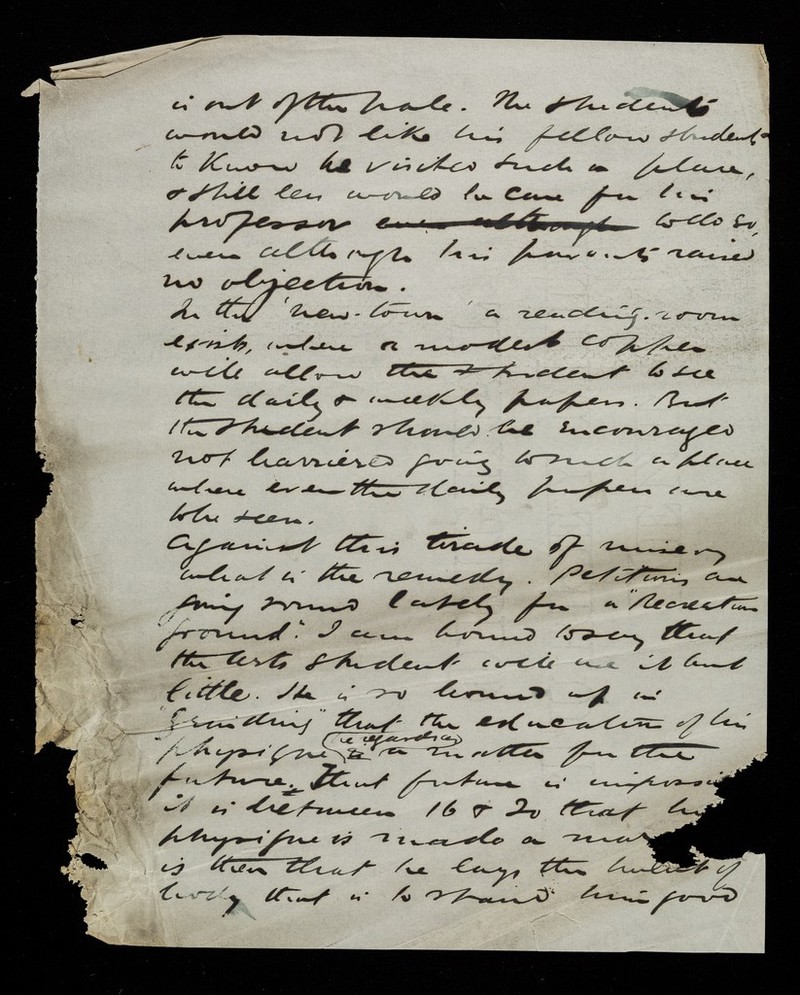 is out of the hale. The student
would not like his fellow students
to know he visited such a place,
& still less would he care for his
professor even although to do so,
even although his parents raised
no objection.
In the 'new-town' a reading-room
exists, where a modest copper
will allow the student to see
the daily & weekly papers. But
the student should be encouraged
not barriered going to such a place
where even the daily papers are
to be seen.
Against this tirade of misery
what is the remedy. Petitions are
going round lately for a "Recreation
ground". I am bound to say that
the Arts student will use it but
little. He is so bound up in
"grinding" that the education of his
physique he regards as a matter for the
future. That future is
it is between 16 & 20 that
physique is made a
is then that he lays the of
body that is to stand him good